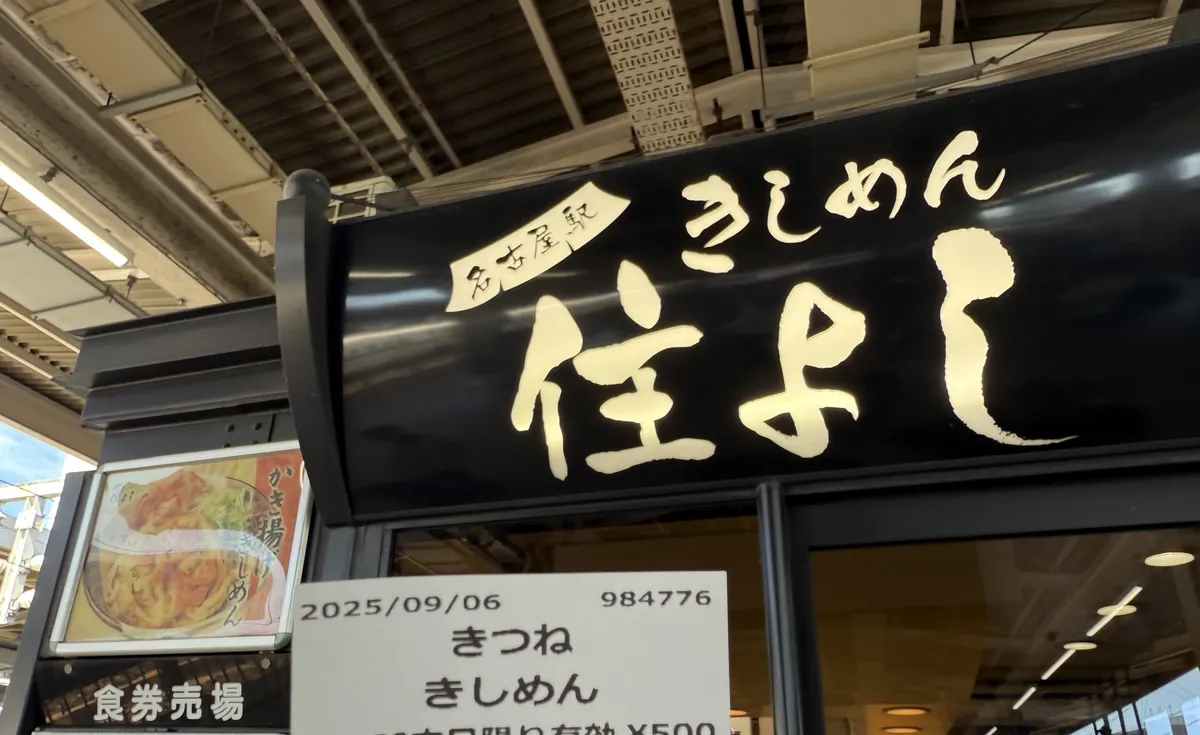 名古屋駅
きしめん
住よし
かき揚げ
きしめん
食券売場
2025/09/06 984776
きつね
きしめん
本日限り有効 ¥500